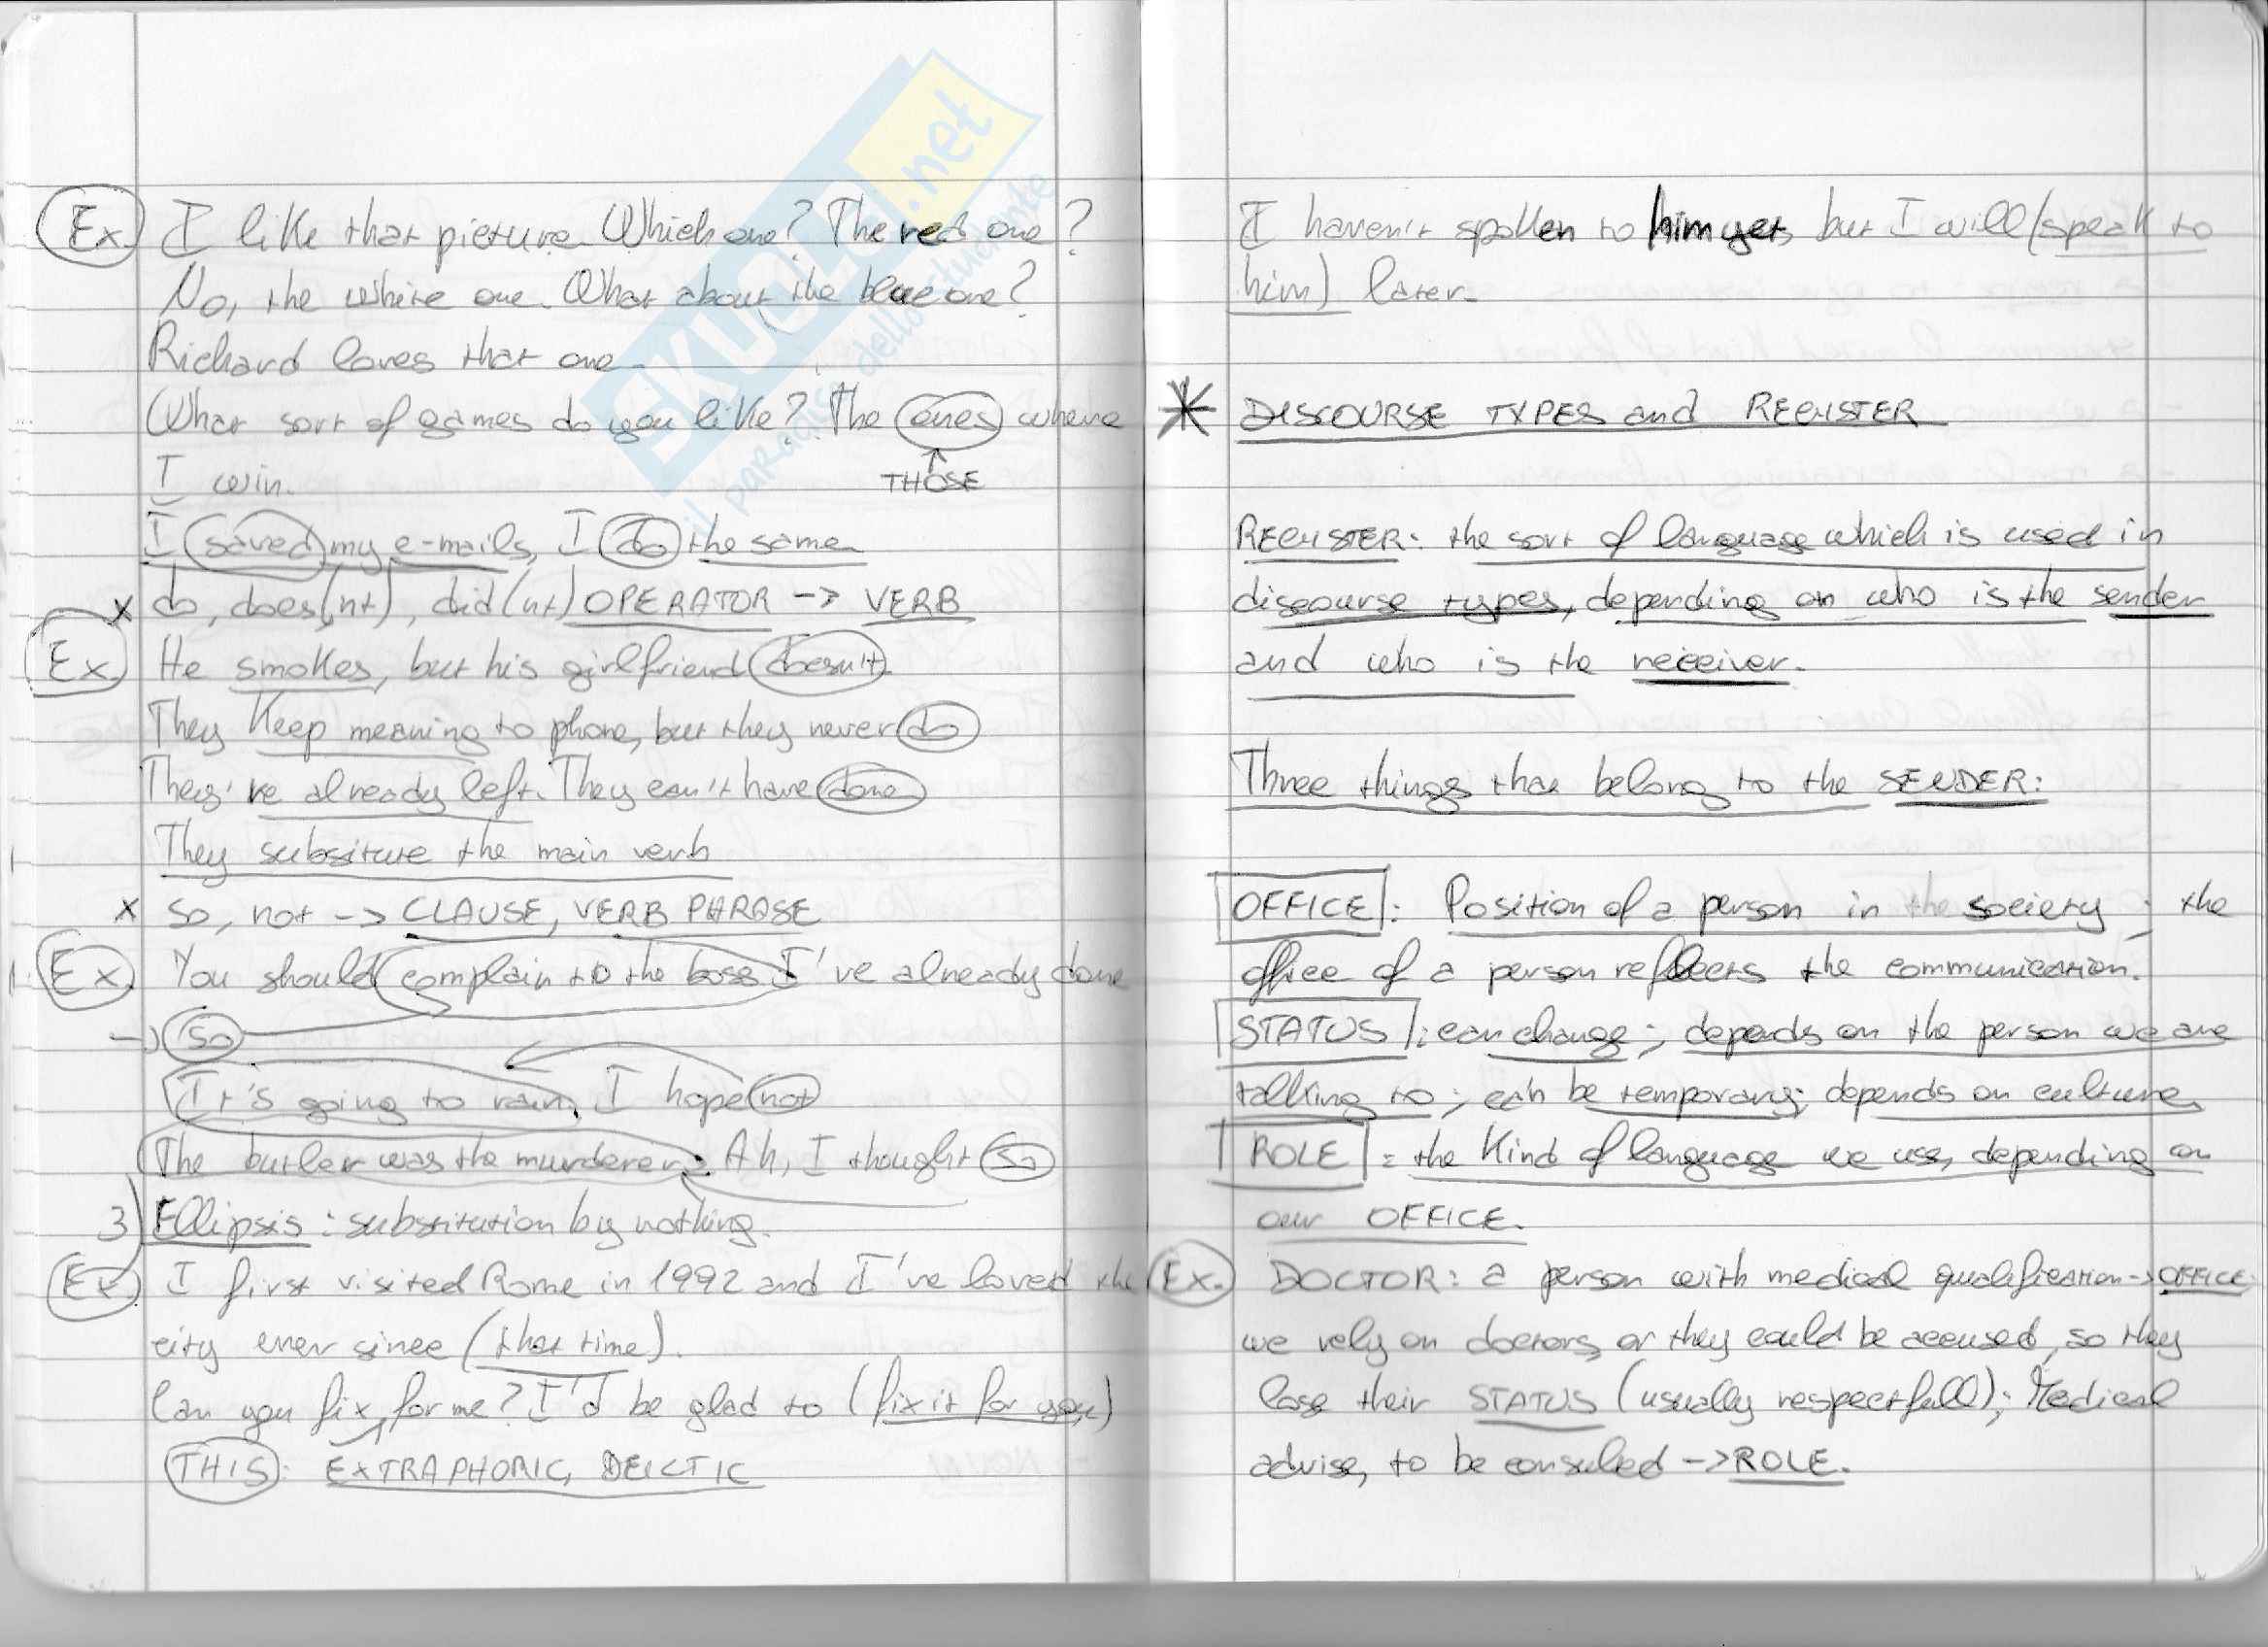 Ex. I like that picture. Which one? The red one?
No, the white one. What about the blue one?
Richard loves that one.
What sort of games do you like? The ones where
I win.
THOSE
I saved my e-mails, I do the same
x do, does(n't), did(n't) OPERATOR -> VERB
Ex He smokes, but his girlfriend doesn't.
They keep meaning to phone, but they never do
They've already left. They can't have done
They subsitute the main verb
x so, not -> CLAUSE, VERB PHRASE
Ex. You should complain to the boss I've already done
-> so
It's going to rain. I hope not
The butler was the murderer. Ah, I thought so
3) Ellipsis: substitution by nothing.
Ex I first visited Rome in 1992 and I've loved the
city ever since (that time).
Can you fix for me? I'd be glad to (fix it for you)
THIS: EXTRAPHORIC, DEICTIC
SKUOLA.net
il paradiso dello studente
I haven't spoken to him yet, but I will (speak to
him) later.
* DISCOURSE TYPES and REGISTER
REGISTER: the sort of language which is used in
discourse types, depending on who is the sender
and who is the receiver.
Three things that belong to the SENDER:
OFFICE: Position of a person in the society; the
office of a person reflects the communication.
STATUS: can change; depends on the person we are
talking to; can be temporary; depends on culture,
ROLE: the kind of language we use, depending on
our OFFICE.
Ex. DOCTOR: a person with medical qualification -> OFFICE
we rely on doctors, or they could be accused, so they
lose their STATUS (usually respectfull); Medical
advise, to be consulted -> ROLE.